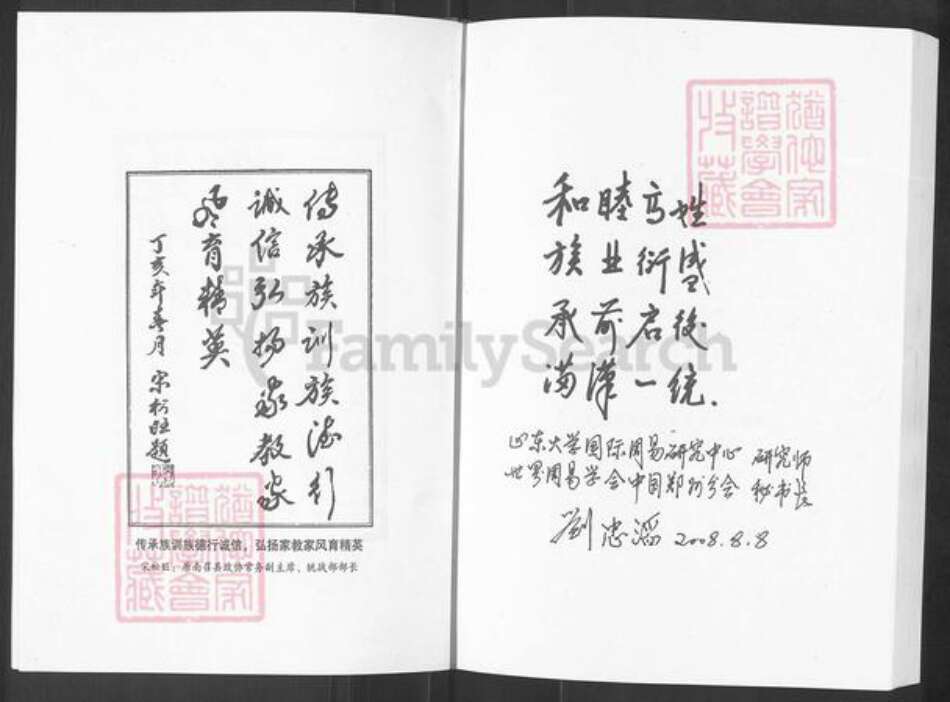 传承族训族德行
诚信弘扬家教家
风育精英
丁亥年春月 宋松旺题
传承族训族德行诚信，弘扬家教家风育精英
宋松旺：原南召县政协常务副主席、统战部部长
猶他家
譜學會
收藏
FamilySearch
猶他家
譜學會
收藏
和睦高姓
族业衍盛
承前启後
满汉一统.
山东大学国际周易研究中心 研究师
世界周易学会中国郑州分会 秘书长
劉忠滔 2008.8.8